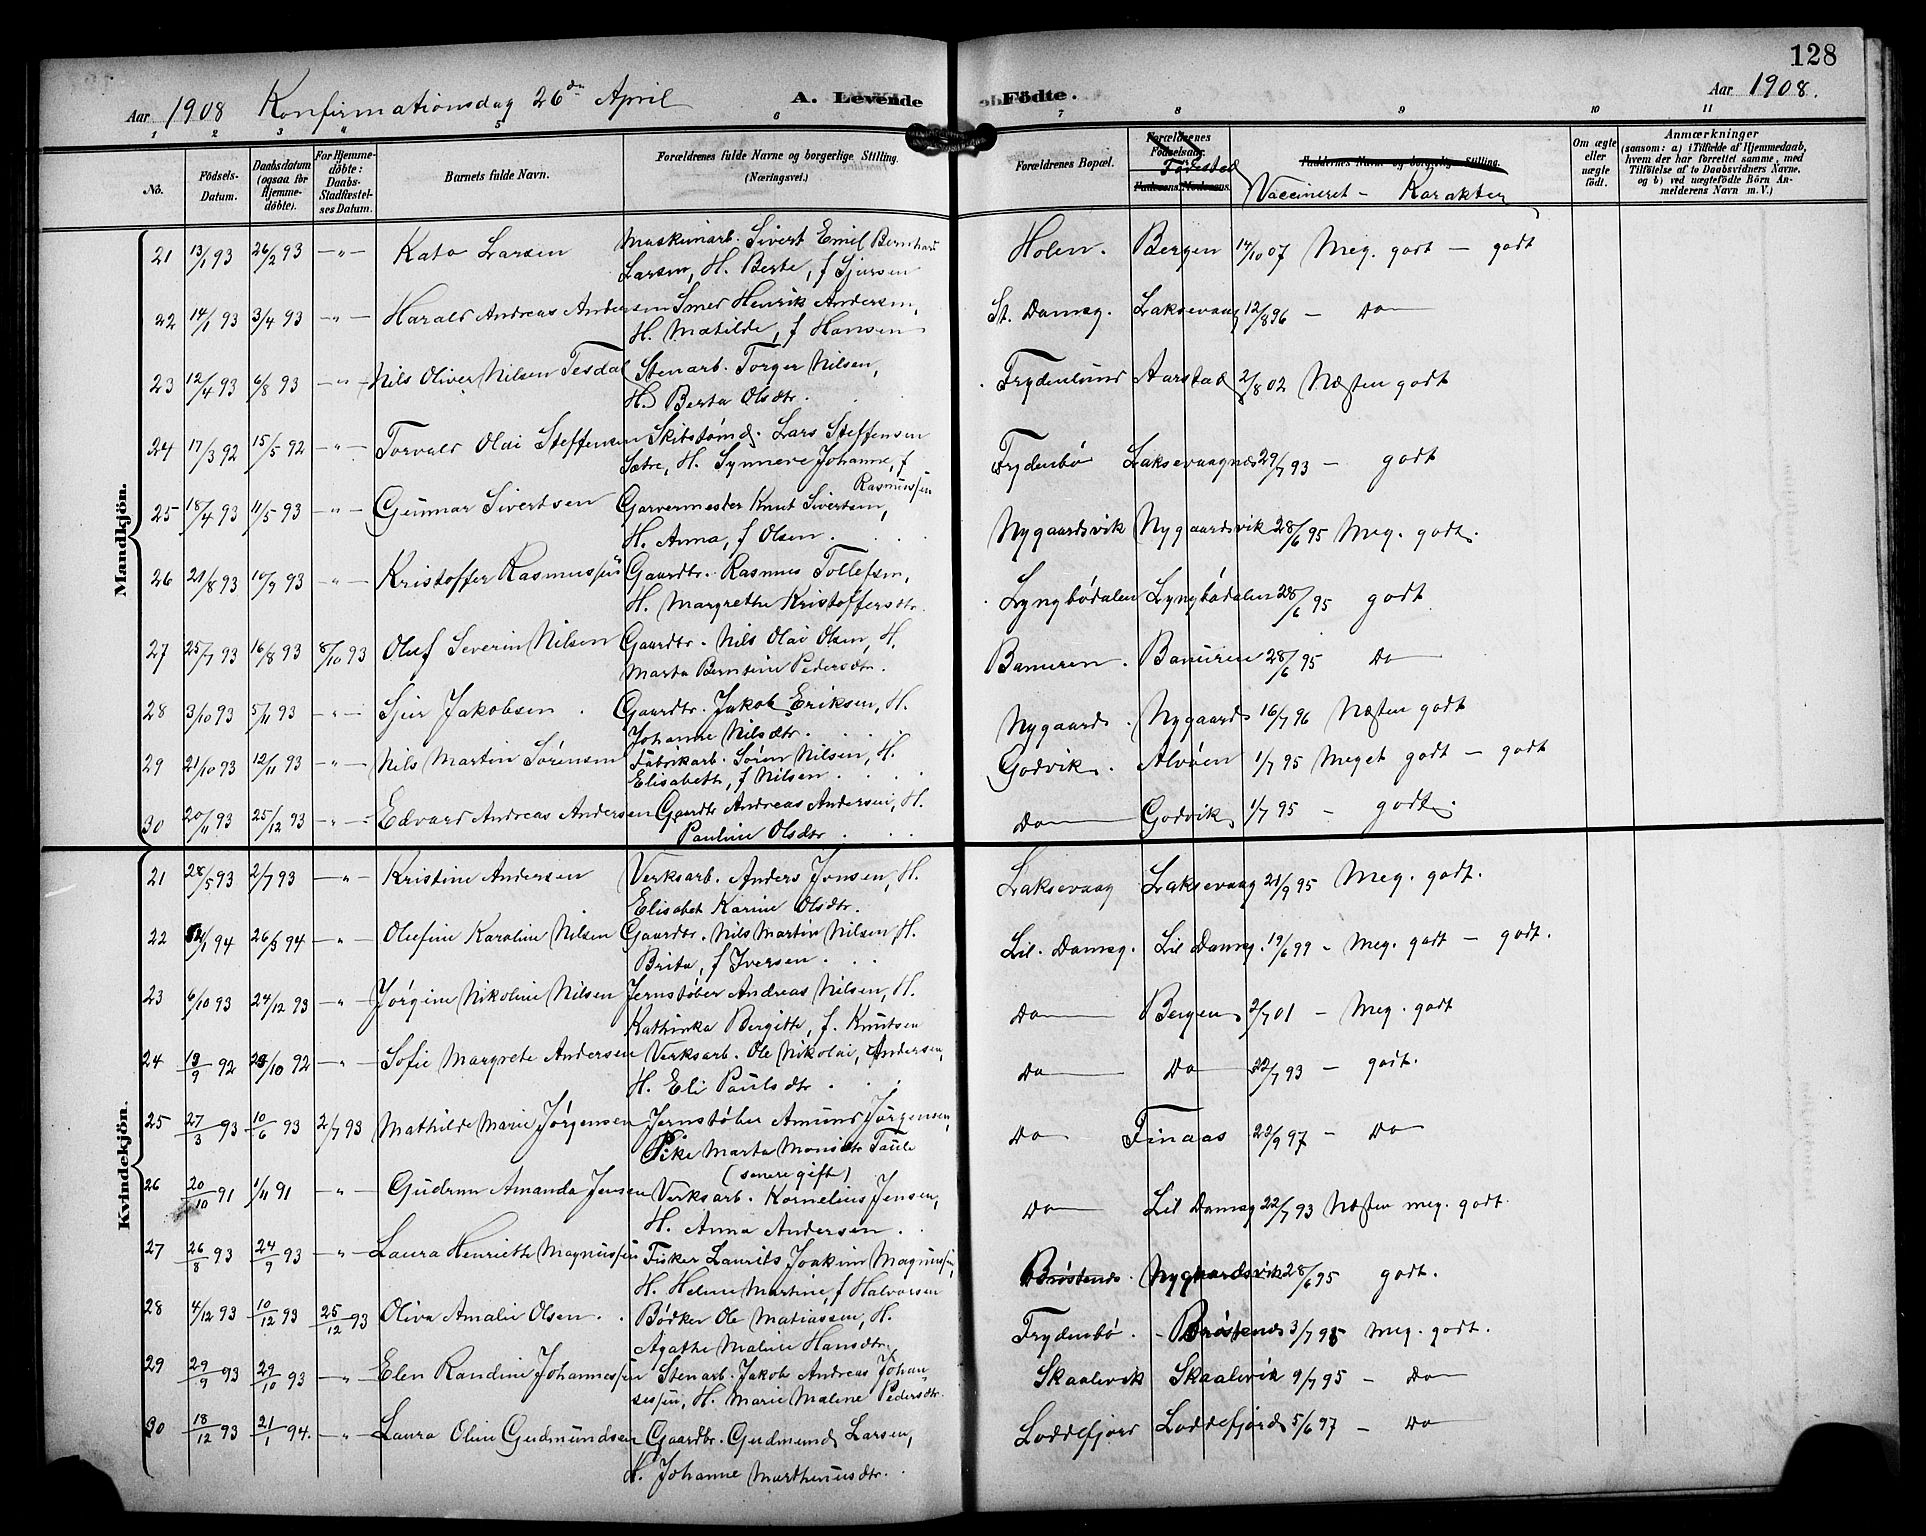 128
Aar 1908 Konfirmationsdag 26de April A. Levende Födte. Aar 1908.
1 2 3 4 5 6 7 8 9 10 11
No. Födsels-Datum. Daabsdatum (ogsaa for Hjemme-döbte). For Hjemme-döbte: Daabs-Stadfæstel-ses Datum. Barnets fulde Navn. Forældrenes fulde Navne og borgerlige Stilling. (Næringsvei.) Forældrenes Bopæl. Forældrenes Födselsaar. Fødested Faddernes Navne og borgerlig Stilling. Vaccineret - Karakter Om ægte eller uægte födt. Anmærkninger (saasom: a) i Tilfælde af Hjemmedaab, hvem der har forrettet samme, med Tilföielse af to Daabsvidners Navne, og b) ved uægtefödte Börn An-melderens Navn m. V.)
Mandkjön.
21 13/1 93 26/2 93 -"- Kato Larsen Maskinarb. Sivert Emil Bernhard Holen. Bergen 14/10 07 Meg. godt - godt
Larsen, H. Berte, f Sjursen
22 14/1 93 3/4 93 -"- Harald Andreas Andersen Smed Henrik Andersen, St. Damsg. Laksevaag 12/8 96 - Do
H. Matilde, f Hansen
23 12/4 93 6/8 93 -"- Nils Oliver Nilsen Tesdal Stenarb. Torger Nilsen, Frydenlund Aarstad 2/8 02 Næsten godt
H. Berta Olsdtr.
24 17/3 92 15/5 92 -"- Torvald Olai Steffensen Skibstømd. Lars Steffensen Frydenbø Laksevaagnes 29/7 93 - godt
Sætre, H. Synneve Johanne, f
Rasmussen
25 18/4 93 11/5 93 -"- Gunnar Sivertsen Garvermester Knut Sivertsen, Nygaardsvik Nygaardsvik 28/6 95 Meg. godt.
H. Anna, f Olsen.
26 21/8 93 10/9 93 -"- Kristoffer Rasmussen Gaardbr. Rasmus Tollefsen, Lyngbødalen Lyngbødalen 28/6 95 godt
H. Margrethe Kristoffersdtr.
27 25/7 93 16/8 93 8/10 93 Oluf Severin Nilsen Gaardbr. Nils Olai Olsen, H. Banuren. Banuren 28/6 95 Do
Marta Berntine Pedersdtr.
28 3/10 93 5/11 93 -"- Sjur Jakobsen. Gaardbr. Jakob Eriksen, H. Nygaard. Nygaard 16/7 96 Næsten godt
Johanne Nilsdtr.
29 21/10 93 12/11 93 -"- Nils Martin Sørensen Fabrikarb. Søren Nilsen, H. Godvik. Alvøen 1/7 95 Meget godt - godt
Elisabeth, f Nilsen.
30 20/11 93 25/12 93 -"- Edvard Andreas Andersen Gaardbr Andreas Andersen, H. Do Godvik 1/7 95 - godt.
Pauline Olsdtr.
Kvindekjön.
21 28/5 93 2/7 93 -"- Kristine Andersen Verksarb. Anders Jonsen, H. Laksevaag Laksevaag 21/9 95 Meg. godt.
Elisabet Karine Olsdtr.
22 94 26/3 94 -"- Olufine Karoline Nilsen Gaardbr. Nils Martin Nilsen, H. Lil. Damsg. Lil Damsg. 19/6 99 - Meg. godt - godt.
Brita, f Iversen.
23 6/10 93 24/12 93 -"- Jørgine Nikoline Nilsen Jernstøber Andreas Nilsen, H. Do Bergen 2/7 01 - Meg. godt
Kathinka Bergitte, f. Knutsen
24 19/9 92 23/10 92 -"- Sofie Margrete Andersen Verksarb. Ole Nikolai Andersen, Do Do 22/7 93 - godt.
H. Eli Paulsdtr.
25 27/3 93 10/6 93 2/7 93 Mathilde Marie Jørgensen Jernstøber Amund Jørgensen, Do Finaas 22/9 97 - Do
Pike Marta Monsdtr Taule
(senere gift)
26 20/10 91 1/11 91 -"- Gudrun Amanda Jensen Verksarb. Kornelius Jensen, Do Lil Damsg 22/7 93 Næsten meg. godt.
H. Anna Andersen.
27 26/8 93 24/9 93 -"- Laura Henriette Magnussen Fisker Laurits Joakim Magnussen, Brøstenes. Nygaardsvik 28/6 95 godt.
H. Helene Martine, f Halvorsen
28 4/12 93 10/12 93 25/12 93 Oliva Amalie Olsen. Bødker Ole Matiassen, H. Frydenbø. - Brøstenes 3/7 95 Meg. godt.
Agathe Maline Hansdtr.
29 29/9 93 29/10 93 -"- Elen Randine Johannessen Stenarb. Jakob Andreas Johan- Skaalevik Skaalevik 9/7 95 - Do
nessen, H. Marie Malene Pedersdtr.
30 18/12 93 21/1 94. -"- Laura Oline Gudmundsen Gaardbr. Gudmund Larsen, Loddefjord Loddefjord 5/6 97 - Do
H. Johanne Marthinusdtr.